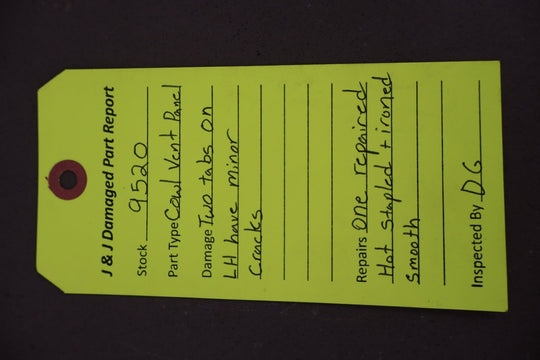 J & J Damaged Part Report
Stock 9520
Part Type Cowl Vent Panel
Damage Two tabs on
LH have minor
Cracks
Repairs One repaired
Hot Stapled + ironed
smooth
Inspected By DG